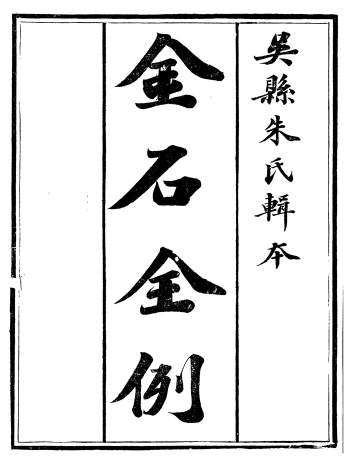 吳縣朱氏輯本
金石全例